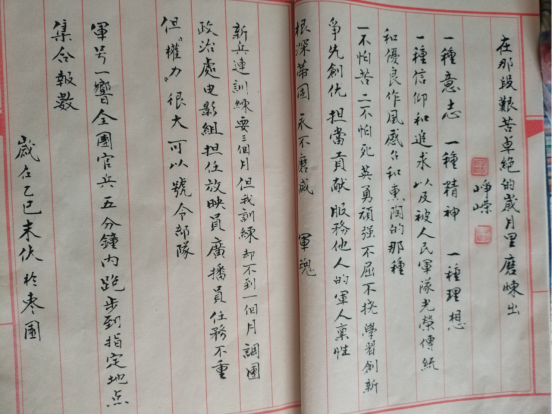 在那段艱苦卓絕的歲月里磨煉出
崢嶸
一種意志 一種精神 一種理想
一種信仰和追求以及被人民軍隊光榮傳統
和優良作風感台和熏陶的那種
一不怕苦二不怕死英勇頑强不屈不挠學習創新
爭先創优 担當貢献 服務他人的軍人禀性
根深蒂固 永不磨滅 軍魂
新兵連訓練要三個月但我訓練却不到一個月調團
政治處电影組担任放映員廣播員任務不重
但"權力"很大可以號令部隊
軍号一響全團官兵五分鐘內跑步到指定地点
集合報数
歲在乙巳末伏於枣園